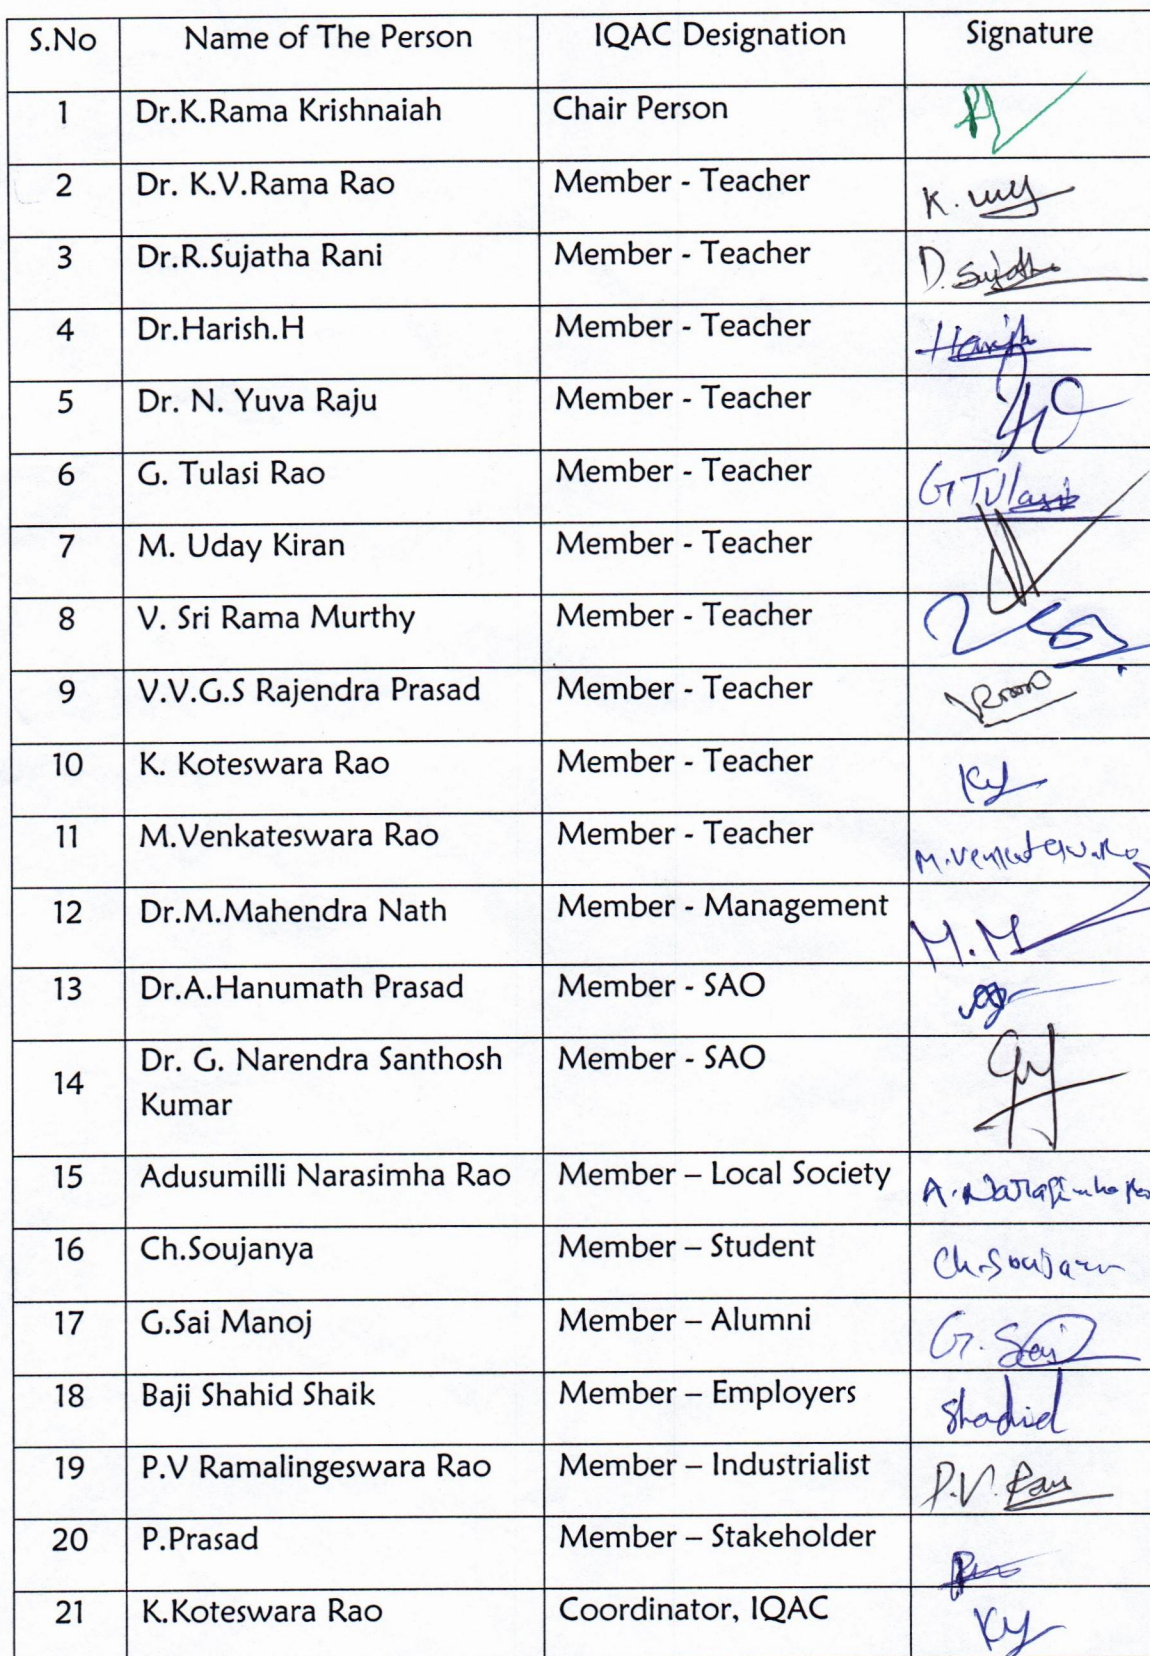 S.No Name of The Person IQAC Designation Signature
1 Dr.K.Rama Krishnaiah Chair Person
2 Dr. K.V.Rama Rao Member - Teacher K.
3 Dr.R.Sujatha Rani Member - Teacher D. Sujatha
4 Dr.Harish.H Member - Teacher Harish
5 Dr. N. Yuva Raju Member - Teacher
6 G. Tulasi Rao Member - Teacher G Tulasi
7 M. Uday Kiran Member - Teacher
8 V. Sri Rama Murthy Member - Teacher
9 V.V.G.S Rajendra Prasad Member - Teacher
10 K. Koteswara Rao Member - Teacher
11 M.Venkateswara Rao Member - Teacher M.Venkateswa.Rao
12 Dr.M.Mahendra Nath Member - Management M.M
13 Dr.A.Hanumath Prasad Member - SAO
14 Dr. G. Narendra Santhosh Member - SAO
Kumar
15 Adusumilli Narasimha Rao Member – Local Society A. Narasimha Rao
16 Ch.Soujanya Member – Student Ch.Soujanya
17 G.Sai Manoj Member – Alumni G. Sai
18 Baji Shahid Shaik Member – Employers Shahid
19 P.V Ramalingeswara Rao Member – Industrialist P.V. Rao
20 P.Prasad Member – Stakeholder
21 K.Koteswara Rao Coordinator, IQAC